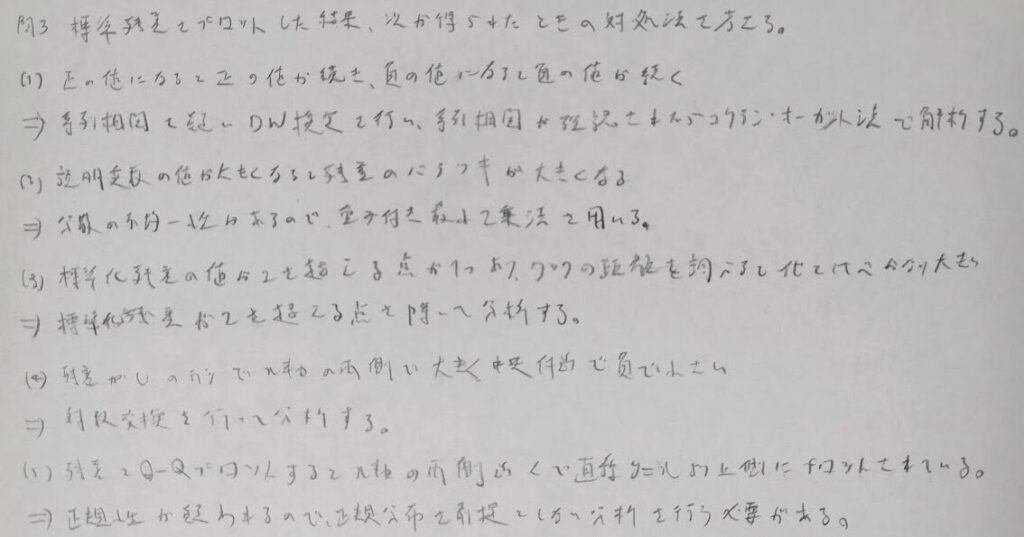 問3 標準残差をプロットした結果、次が得られたときの対処法を考える。
(1) 正の値になると正の値が続き、負の値になると負の値が続く
⇒ 系列相関を疑い DW検定を行い、系列相関が確認されたらコクラン・オーカット法で解析する。
(2) 説明変数の値が大きくなると残差のバラツキが大きくなる
⇒ 分散の不均一性があるので、重み付き最小2乗法を用いる。
(3) 標準化残差の値が2を超える点が1つあり、クックの距離を調べると他と比べかなり大きい
⇒ 標準化残差が2を超える点を除いて分析する。
(4) 残差がUの形でx軸の両側で大きく中央付近で負で小さい
⇒ 対数変換を行って分析する。
(5) 残差をQ-Qプロットするとx軸の両側近くで直線y=xより上側にプロットされている。
⇒ 正規性が疑われるので、正規分布を前提としない分析を行う必要がある。